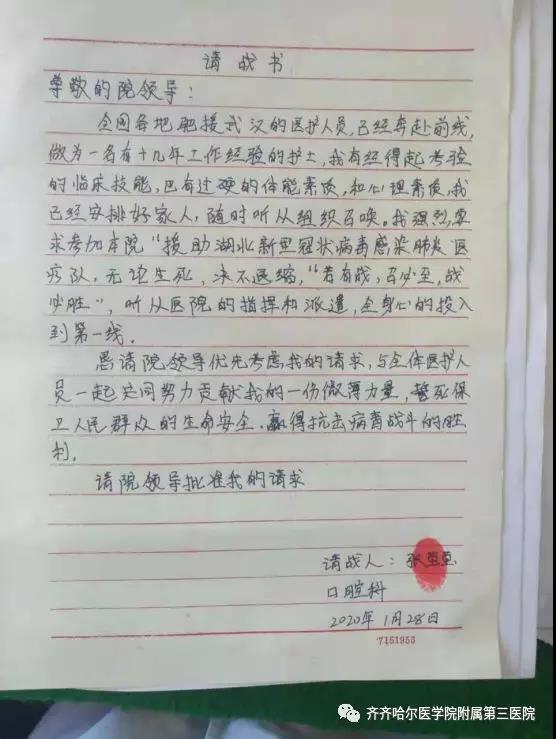 请战书
尊敬的院领导：
全国各地驰援武汉的医护人员，已经奔赴前线，
做为一名有十九年工作经验的护士，我有经得起考验
的临床技能，也有过硬的体能素质，和心理素质，我
已经安排好家人，随时听从组织召唤。我强烈要
求参加本院“援助湖北新型冠状病毒感染肺炎医
疗队，无论生死，决不退缩，“若有战，召必至，战
必胜”，听从医院的指挥和派遣，全身心的投入
到第一线。
恳请院领导优先考虑我的请求，与全体医护人
员一起共同努力贡献我的一份微薄力量，誓死保
卫人民群众的生命安全，赢得抗击病毒战斗的胜
利。
请院领导批准我的请求
请战人：张
口腔科
2020年1月28日
7151953
齐齐哈尔医学院附属第三医院